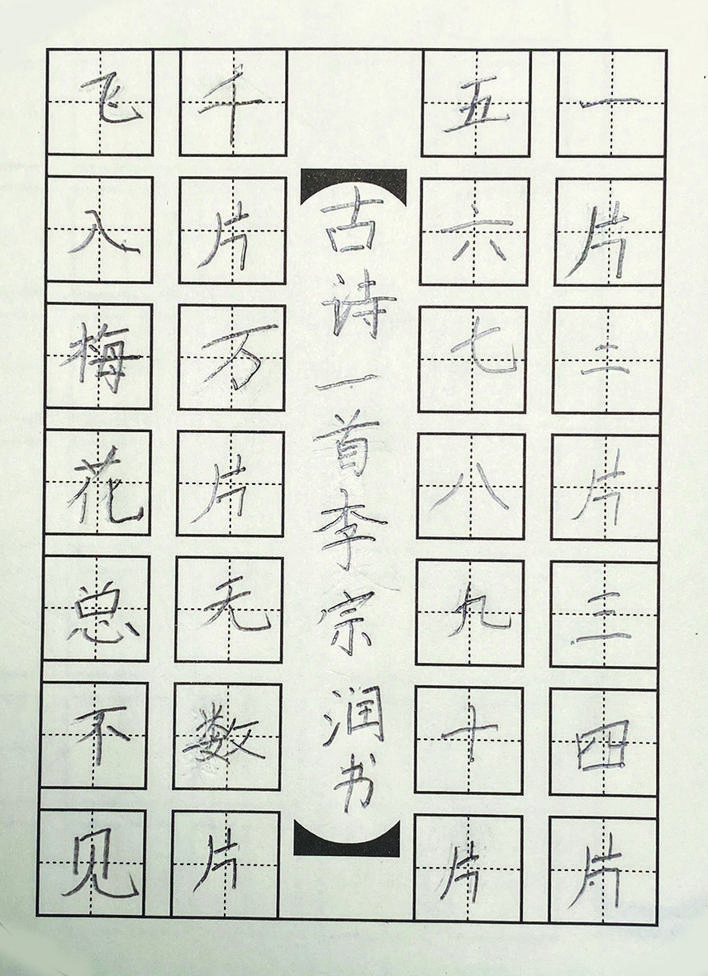 一片二片三四片
五六七八九十片
古诗一首李宗润书
千片万片无数片
飞入梅花总不见